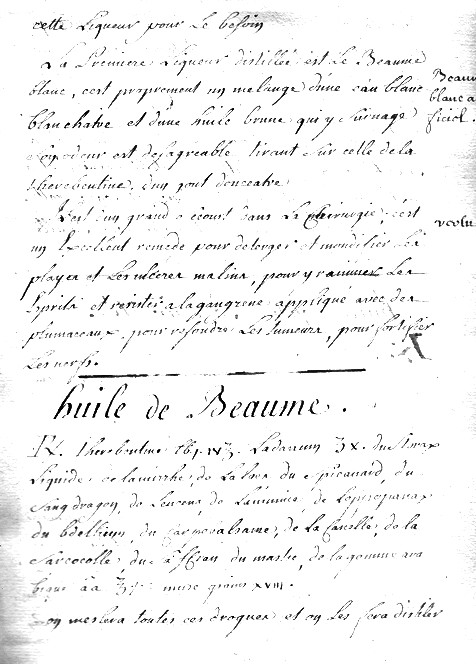 cette Liqueur pour Le besoin
La Premiere Liqueur distillée est Le Beaume
blanc, c'est proprement un melange d'une eau blanc
blanchatre et d'une huile brune qui y surnage
son odeur est desagreable tirant sur celle de la
therebentine, d'un gout douceatre
Beaum
blanc a
ficiel.
C'est un grand secours dans La chirurgie, c'est
un Excellent remede pour deterger et mondifier Les
playes et Les ulceres malins, pour y ranimer Les
Esprits et resister a la gangrene appliqué avec des
plumaceaux pour resoudre Les tumeurs, pour fortifier
Les nerfs.
huile de Beaume.
R. therebentine Ladanum du Storax
Liquide, de la mirrhe, de La du Spicanard, du
Sang dragon, de L'encens, de de L'opopanax
du bdellium, du Carpobalsame, de La Canelle, de la
Sarcocolle, du saffran du mastic, de la gomme ara
bique aa musc grains xviii.
on meslera toutes ces drogues et on Les fera distiler